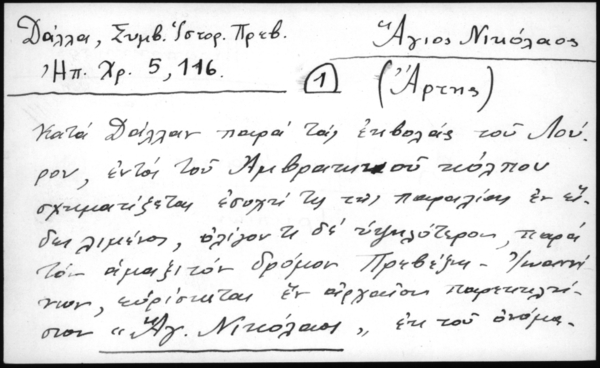 Δάλλα, Συμβ. Ἱστορ. Πρεβ.
Ἠπ. Χρ. 5, 116.
Ἅγιος Νικόλαος
①
(Ἄρτης)
κατά Δάλλαν παρά τάς ἐκβολάς τοῦ Λού-
ρου, ἐντός τοῦ Ἀμβρακικοῦ κόλπου
σχηματίζεται ἐσοχή τις τῆς παραλίας ἐν εἴ-
δει λιμένος, ὀλίγον τι δέ ὑψηλότερον, παρά
τόν ἁμαξιτόν δρόμον Πρεβέζης - Ἰωαννί
νων, εὑρίσκεται ἕν ἀρχαῖον παρεκκλή-
σιον "Ἅγ. Νικόλαος", ἐκ τοῦ ὀνόμα-